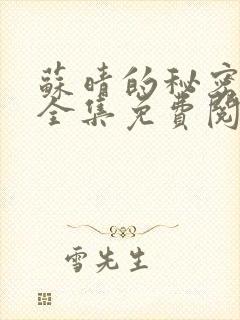 蘇晴的秘密
全集免費閱
雪先生